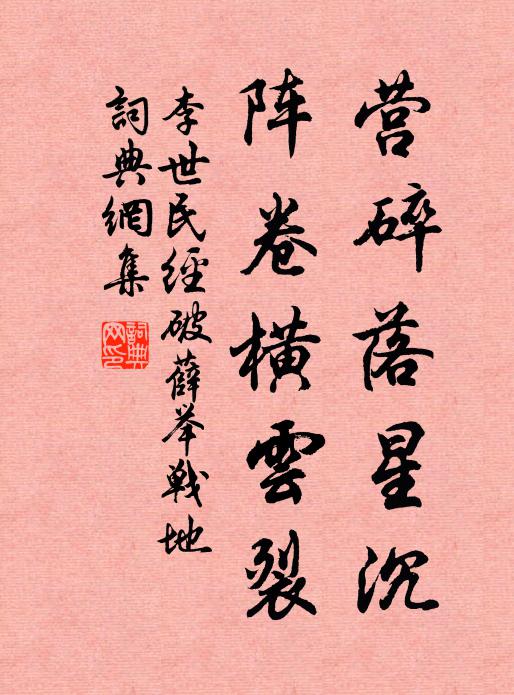 营碎落星沉
阵卷横雲裂
李世民經破薛举戰地
詞典網集
詞典网印